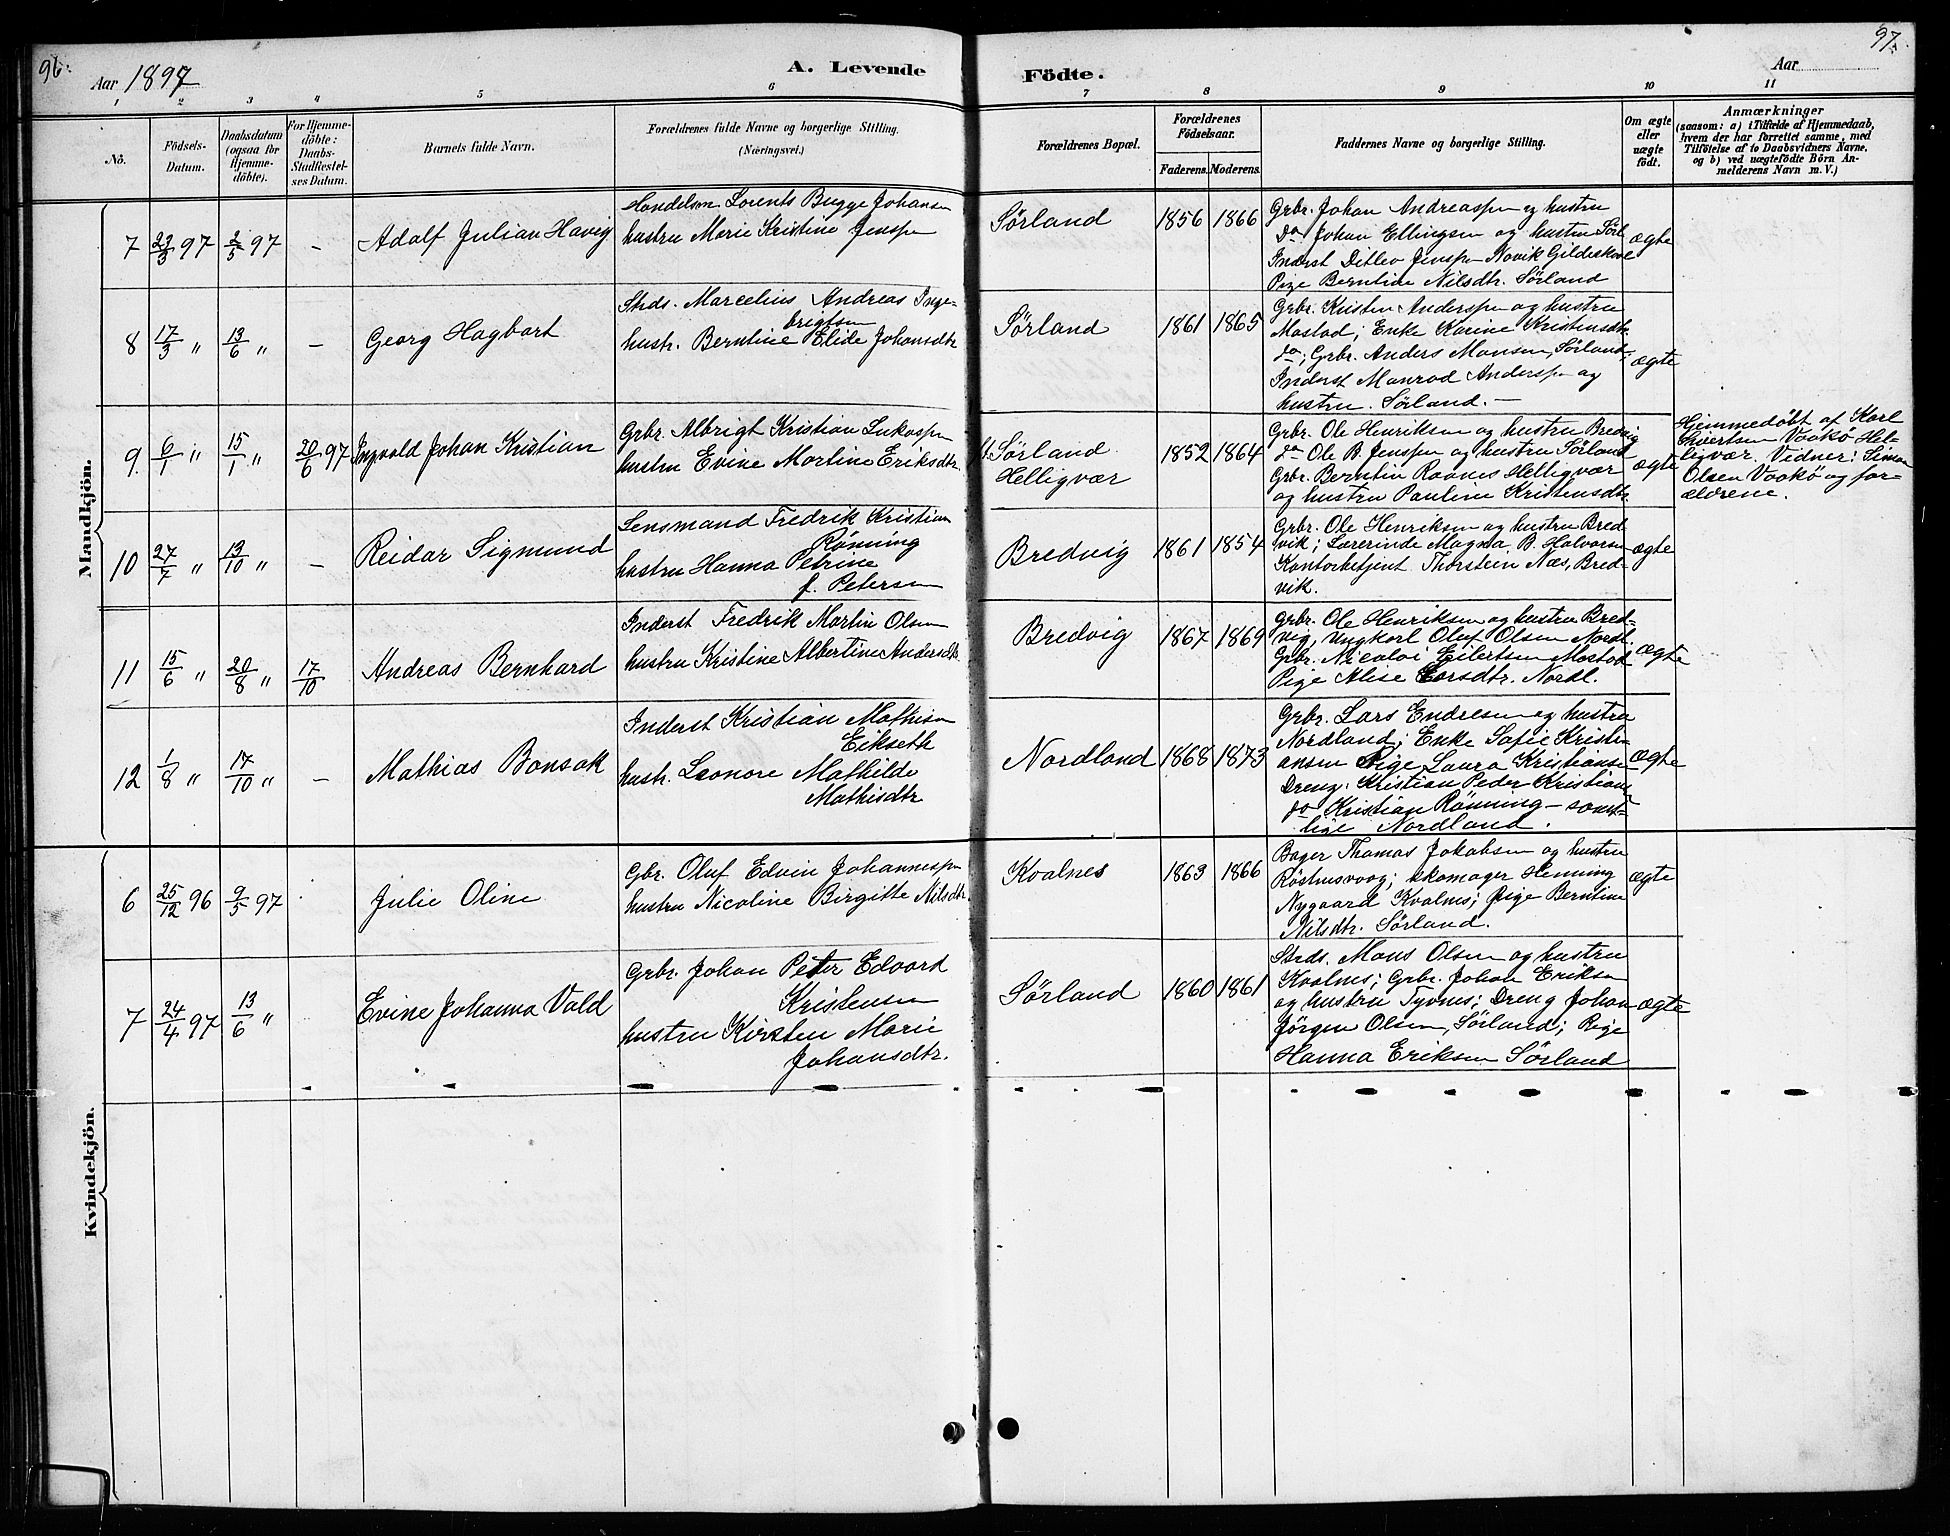 96.
Aar 1897
A. Levende
1 2 3 4 5 6
No.
Födsels-
Datum.
Daabsdatum
(ogsaa for
Hjemme-
döbte).
For Hjemme-
döbte:
Daabs-
Stadfæstel-
ses Datum.
Barnets fulde Navn.
Forældrenes fulde Navne og borgerlige Stilling.
(Næringsvei.)
Mandkjön.
7 23/3 97 2/5 97 –
Adolf Julian Havig
Handelsm. Lorents Bugge Johansen
hustru Marie Kristine Jensen
8 17/3 " 13/6 " –
Georg Hagbart
Strds. Marcelius Andreas Inge-
brigtsen
hustr. Berntine Elide Johansdtr
9 6/1 " 15/1 " 20/6 97
Ingvald Johan Kristian
Grbr. Albrigt Kristian Lukassen
hustru Evine Martine Eriksdtr.
10 27/7 " 13/10 " –
Reidar Sigmund
Lensmand Fredrik Kristian
Rönning
hustru Hanna Petrine
f. Petersen
11 15/6 " 20/8 " 17/10
Andreas Bernhard
Inderst Fredrik Martin Olsen
hustru Kristine Albertine Andersdtr.
12 1/8 " 17/10 " –
Mathias Bonsak
Inderst Kristian Mathisen
Eikseth
hustr. Leonore Mathilde
Mathisdtr
Kvindekjön.
6 25/12 96 9/5 97
Julie Oline
Gbr. Oluf Edvin Johannessen
hustru Nicoline Birgitte Nilsdtr.
7 24/4 97 13/6 "
Evine Johanna Vald
Grbr. Johan Peter Edvard
Kristensen
hustru Kirsten Marie
Johansdtr.
97.
Födte.
Aar
7 8 9 10 11
Forældrenes Bopæl.
Forældrenes
Födselsaar.
Faderens. Moderens.
Faddernes Navne og borgerlige Stilling.
Om ægte
eller
uægte
födt.
Anmærkninger
(saasom: a) i Tilfælde af Hjemmedaab,
hvem der har forrettet samme, med
Tilföielse af to Daabsvidners Navne,
og b) ved uægtefödte Börn An-
melderens Navn m. V.)
Sørland 1856 1866
Grbr. Johan Andreassen og hustru
Do Johan Ellingsen og hustru Sörl.
Inderst Ditlev Jenssen Novik Gildeskaal
Pige Berntine Nilsdtr. Sørland
ægte
Sørland 1861 1865
Grbr. Kristen Anderssen og hustru
Mostad; Enke Karine Kristensdtr.
do; Grbr. Anders Monsen, Sörland;
Inderst Monrad Anderssen og
hustru. Sörland. –
ægte
Sørland
Helligvær 1852 1864
Grbr. Ole Henriksen og hustru Bredvig
do Ole B. Jenssen og hustru Sörland
Grbr. Berntin Ravnes Helligvær
og hustru Pauline Kristensdtr.
ægte
Hjemmedöbt af Karl
Evertsen Vaakö Hel-
ligvær. Vidner: Simon
Olsen Vaakö og for-
ældrene.
Bredvig 1861 1854
Grbr. Ole Henriksen og hustru Bred
vik; Lærerinde Magna B. Halvorsen
Kontorbetjent Thorstein Næs, Bred-
vik.
ægte
Bredvig 1867 1869
Grbr. Ole Henriksen og hustru Bred-
vig, Ungkarl Oluf Olsen Nordl.
Grbr. Nicolai Eilertsen Mostad
Pige Alise Larsdtr. Nordl.
ægte
Nordland 1868 1873
Grbr. Lars Endresen og hustru
Nordland; Enke Sofie Kristi-
ansen Pige Laura Kristianse
Dreng: Kristian Peder Kristians
do Kristian Rönning – samt-
lige Nordland.
ægte
Kvalnes 1863 1866
Bager Thomas Jakobsen og hustru
Røsthusvaag; skomager Henning
Nygaard Kvalnes; Pige Berntine
Nilsdtr. Sørland.
ægte
Sørland 1860 1861
Strds. Mons Olsen og hustru
Kvalnes; Grbr. Johan Eriksen
og hustru Tyvnes; Dreng Johan
Jörgen Olsen, Sörland; Pige
Hanna Eriksen Sörland
ægte